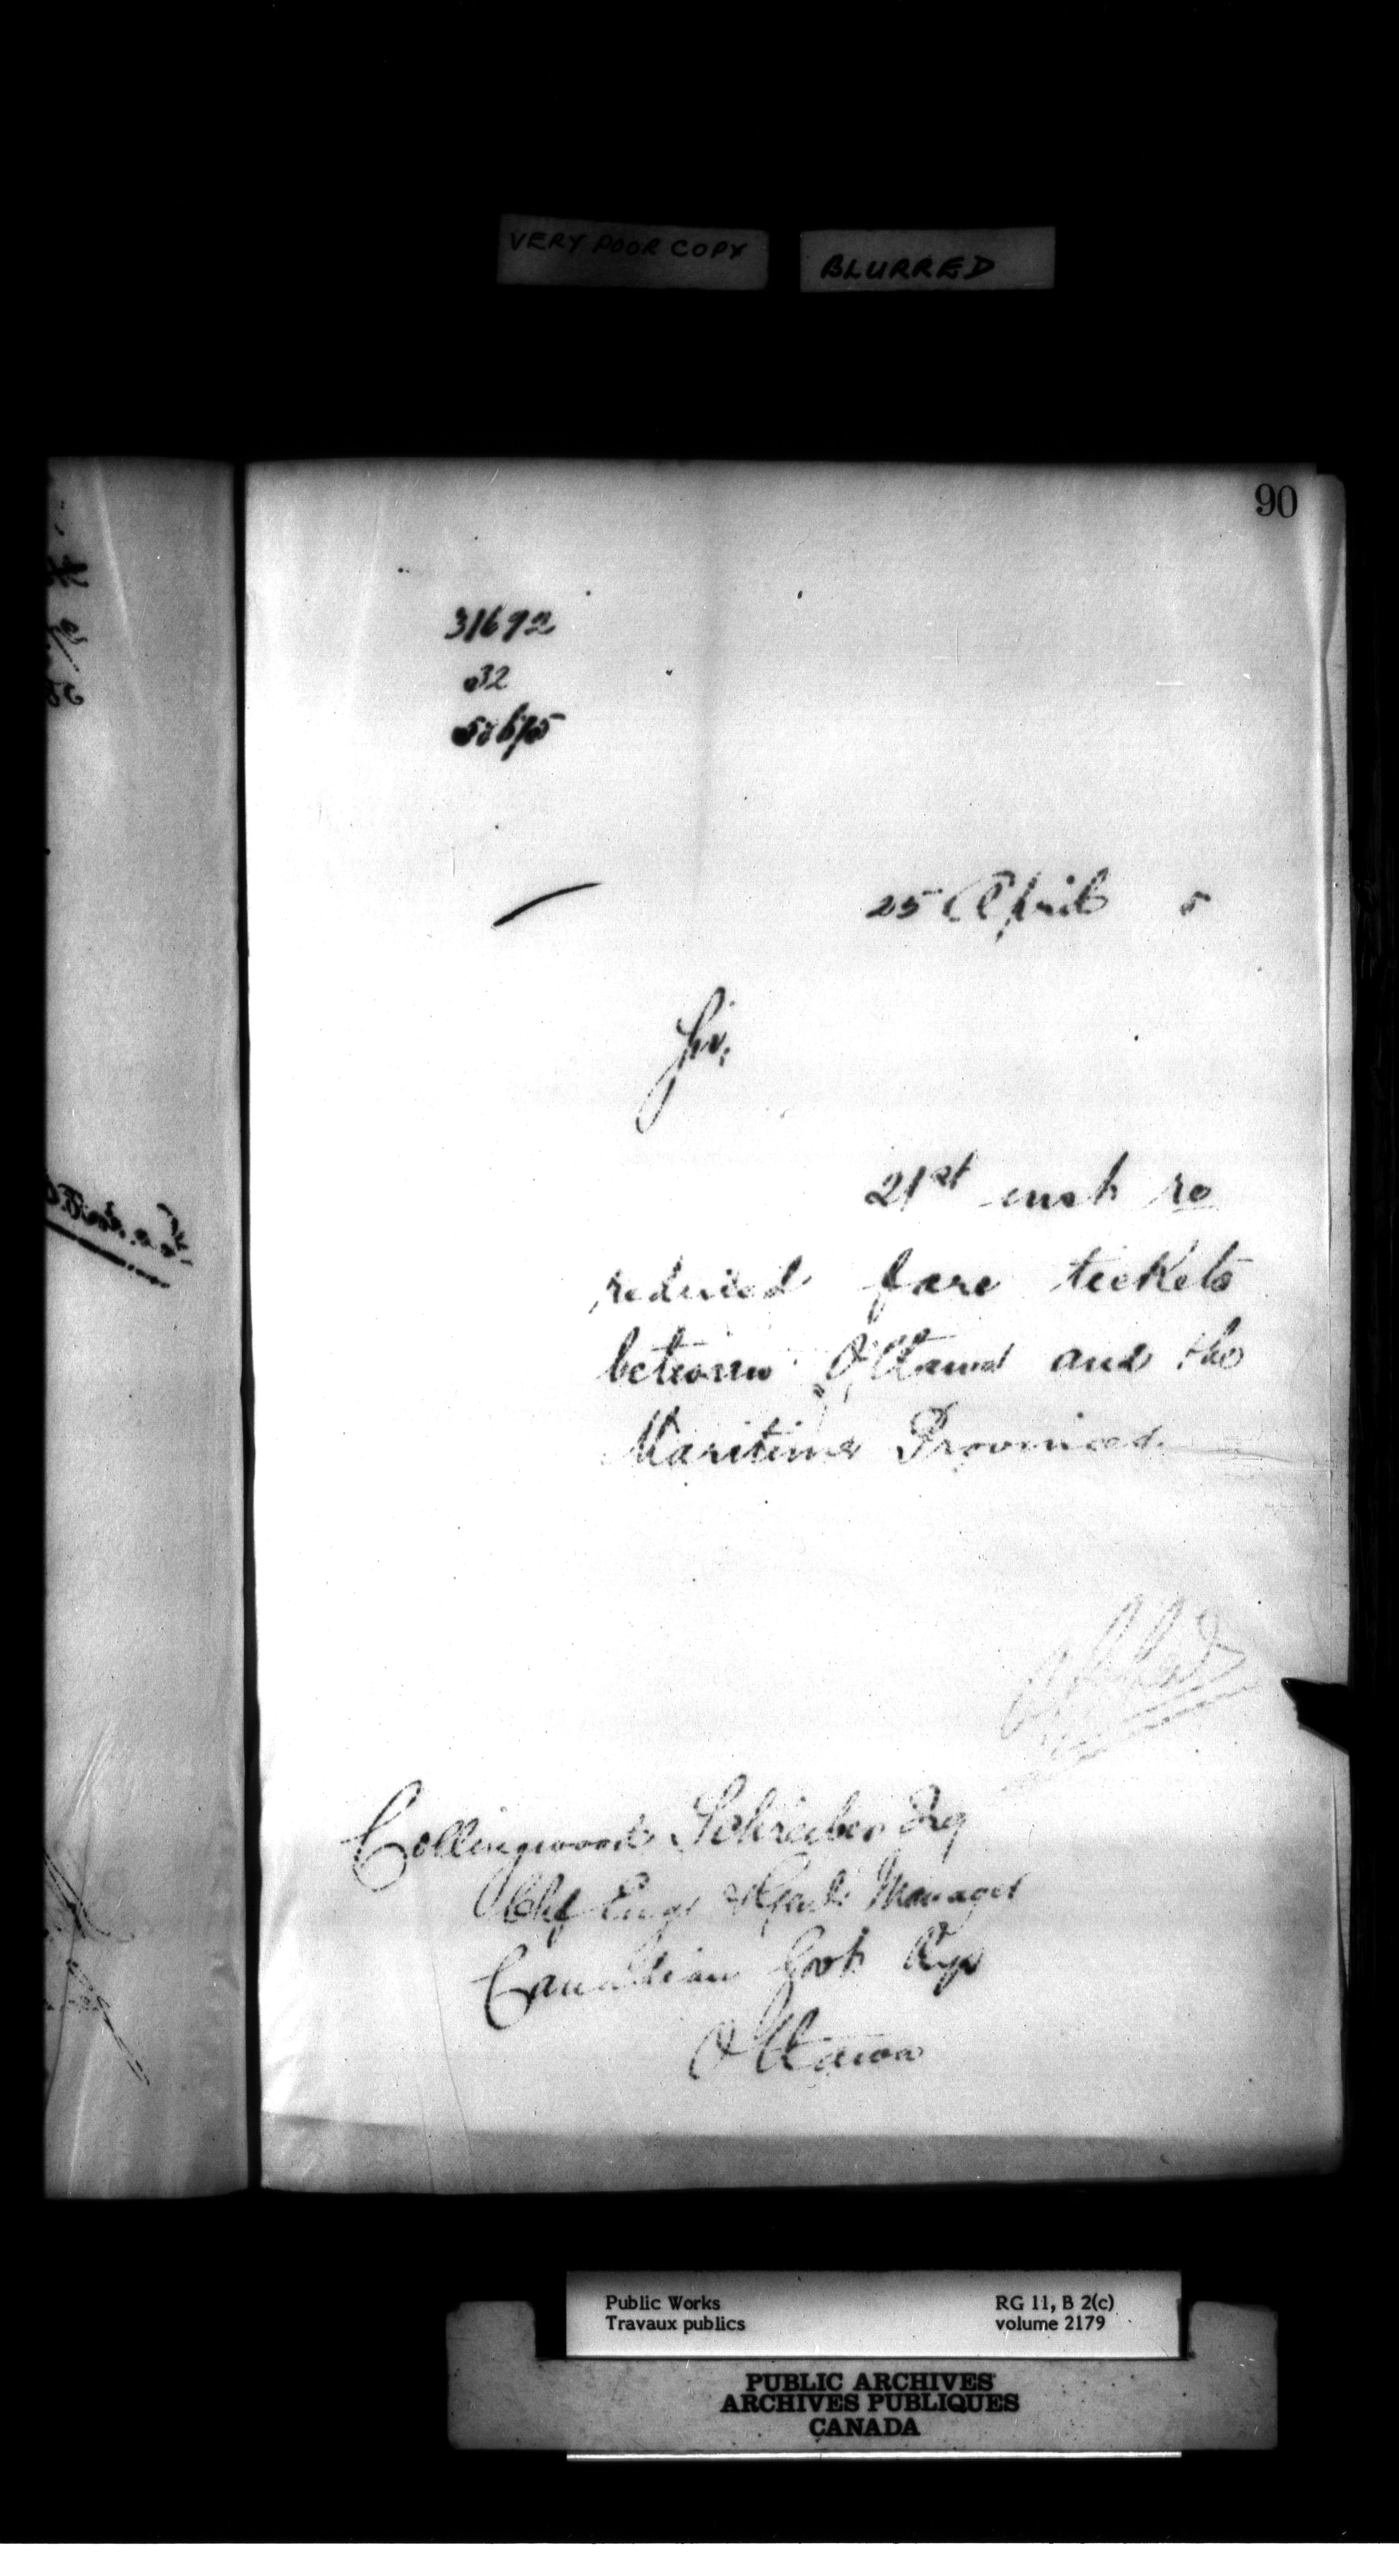 VERY POOR COPY
BLURRED
90
31692
32
25 April 5
Sir,
21st inst re
reduced fare tickets
between Ottawa and the
Maritime Provinces.
Collingwood Schreiber Esq
Chf Engr & Genl Manager
Canadian Govt Rys
Ottawa
Public Works
Travaux publics
RG 11, B 2(c)
volume 2179
PUBLIC ARCHIVES
ARCHIVES PUBLIQUES
CANADA